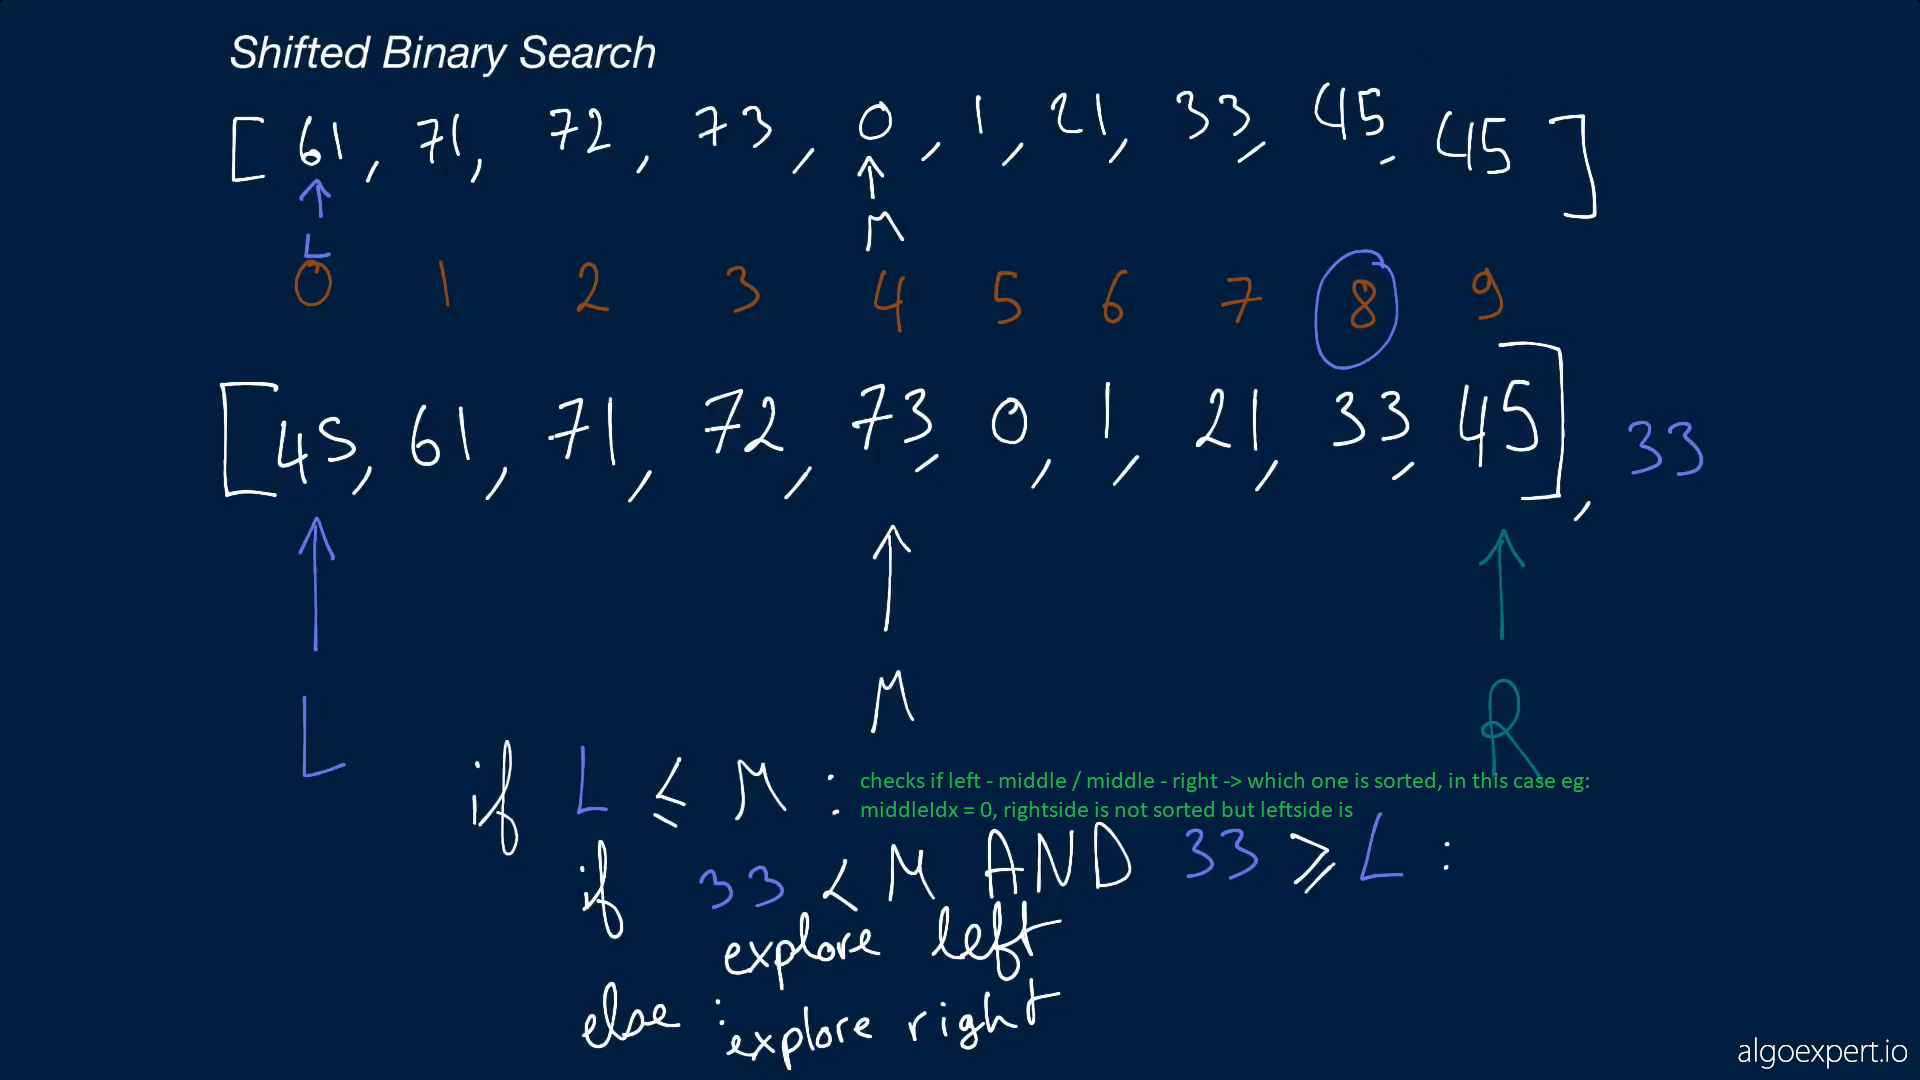 Shifted Binary Search
[ 61, 71, 72, 73, 0, 1, 21, 33, 45, 45 ]
L M
0 1 2 3 4 5 6 7 8 9
[ 45, 61, 71, 72, 73, 0, 1, 21, 33, 45 ], 33
L M R
if L ≤ M :
checks if left - middle / middle - right -> which one is sorted, in this case eg:
middleIdx = 0, rightside is not sorted but leftside is
if 33 < M AND 33 ≥ L :
explore left
else :
explore right
algoexpert.io